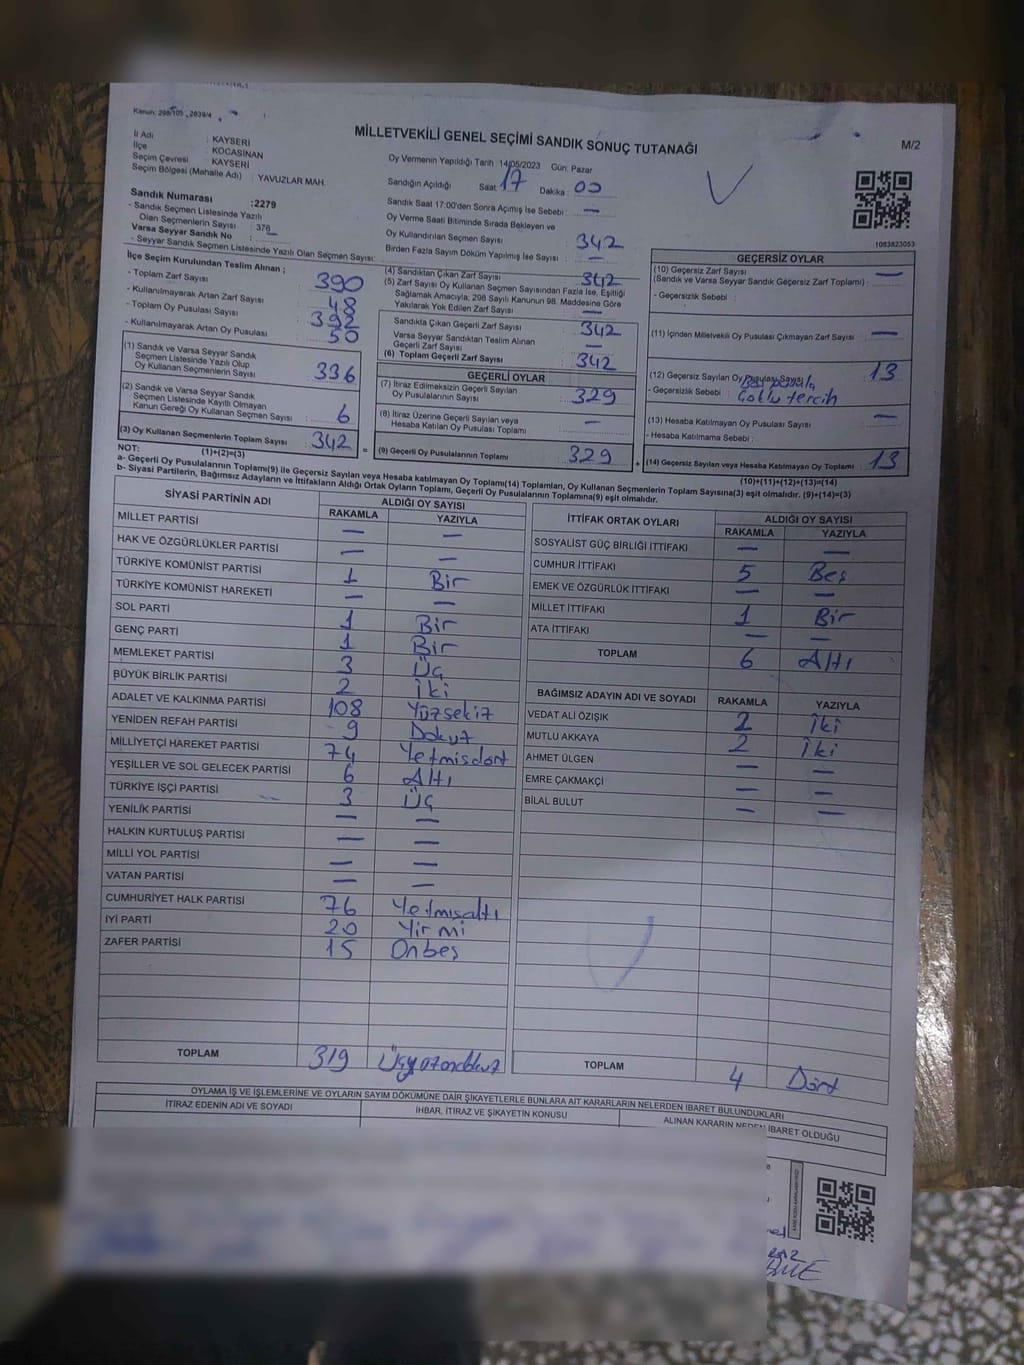 Kanun: 298/105 , 2839/4
MİLLETVEKİLİ GENEL SEÇİMİ SANDIK SONUÇ TUTANAĞI
M/2
İl Adı : KAYSERİ
İlçe : KOCASİNAN
Seçim Çevresi : KAYSERİ
Seçim Bölgesi (Mahalle Adı) : YAVUZLAR MAH.
Oy Vermenin Yapıldığı Tarih 14/05/2023 Gün: Pazar
Sandığın Açıldığı Saat: 17 Dakika: 00
Sandık Saat 17:00'den Sonra Açımış İse Sebebi : —
Oy Verme Saati Bitiminde Sırada Bekleyen ve
Oy Kullandırılan Seçmen Sayısı : 342
Birden Fazla Sayım Döküm Yapılmış İse Sayısı : —
1083823053
Sandık Numarası :2279
- Sandık Seçmen Listesinde Yazılı
Olan Seçmenlerin Sayısı : 376
Varsa Seyyar Sandık No :
- Seyyar Sandık Seçmen Listesinde Yazılı Olan Seçmen Sayısı:
İlçe Seçim Kurulundan Teslim Alınan ;
- Toplam Zarf Sayısı : 390
- Kullanılmayarak Artan Zarf Sayısı : 48
- Toplam Oy Pusulası Sayısı : 392
- Kullanılmayarak Artan Oy Pusulası : 50
(1) Sandık ve Varsa Seyyar Sandık
Seçmen Listesinde Yazılı Olup
Oy Kullanan Seçmenlerin Sayısı : 336
(2) Sandık ve Varsa Seyyar Sandık
Seçmen Listesinde Kayıtlı Olmayan
Kanun Gereği Oy Kullanan Seçmen Sayısı : 6
(3) Oy Kullanan Seçmenlerin Toplam Sayısı : 342
(1)+(2)=(3)
(4) Sandıktan Çıkan Zarf Sayısı : 342
(5) Zarf Sayısı Oy Kullanan Seçmen Sayısından Fazla İse, Eşitliği
Sağlamak Amacıyla, 298 Sayılı Kanunun 98. Maddesine Göre
Yakılarak Yok Edilen Zarf Sayısı : —
Sandıkta Çıkan Geçerli Zarf Sayısı : 342
Varsa Seyyar Sandıktan Teslim Alınan
Geçerli Zarf Sayısı : —
(6) Toplam Geçerli Zarf Sayısı : 342
GEÇERLİ OYLAR
(7) İtiraz Edilmeksizin Geçerli Sayılan
Oy Pusulalarının Sayısı : 329
(8) İtiraz Üzerine Geçerli Sayılan veya
Hesaba Katılan Oy Pusulası Toplamı : —
= (9) Geçerli Oy Pusulalarının Toplamı : 329
GEÇERSİZ OYLAR
(10) Geçersiz Zarf Sayısı : —
(Sandık ve Varsa Seyyar Sandık Geçersiz Zarf Toplamı) :
- Geçersizlik Sebebi :
(11) İçinden Milletvekili Oy Pusulası Çıkmayan Zarf Sayısı : —
(12) Geçersiz Sayılan Oy Pusulası Sayısı : 13
- Geçersizlik Sebebi : Boş pusula
Çoklu tercih
(13) Hesaba Katılmayan Oy Pusulası Sayısı : —
- Hesaba Katılmama Sebebi :
+ (14) Geçersiz Sayılan veya Hesaba Katılmayan Oy Toplamı : 13
(10)+(11)+(12)+(13)=(14)
NOT:
a- Geçerli Oy Pusulalarının Toplamı(9) ile Geçersiz Sayılan veya Hesaba katılmayan Oy Toplamı(14) Toplamları, Oy Kullanan Seçmenlerin Toplam Sayısına(3) eşit olmalıdır. (9)+(14)=(3)
b- Siyasi Partilerin, Bağımsız Adayların ve İttifakların Aldığı Ortak Oyların Toplamı, Geçerli Oy Pusulalarının Toplamına(9) eşit olmalıdır.
SİYASİ PARTİNİN ADI ALDIĞI OY SAYISI
RAKAMLA YAZIYLA
MİLLET PARTİSİ — —
HAK VE ÖZGÜRLÜKLER PARTİSİ — —
TÜRKİYE KOMÜNİST PARTİSİ 1 Bir
TÜRKİYE KOMÜNİST HAREKETİ — —
SOL PARTİ 1 Bir
GENÇ PARTİ 1 Bir
MEMLEKET PARTİSİ 3 Üç
BÜYÜK BİRLİK PARTİSİ 2 İki
ADALET VE KALKINMA PARTİSİ 108 Yüzsekiz
YENİDEN REFAH PARTİSİ 9 Dokuz
MİLLİYETÇİ HAREKET PARTİSİ 74 Yetmişdört
YEŞİLLER VE SOL GELECEK PARTİSİ 6 Altı
TÜRKİYE İŞÇİ PARTİSİ 3 Üç
YENİLİK PARTİSİ — —
HALKIN KURTULUŞ PARTİSİ — —
MİLLİ YOL PARTİSİ — —
VATAN PARTİSİ — —
CUMHURİYET HALK PARTİSİ 76 Yetmişaltı
İYİ PARTİ 20 Yirmi
ZAFER PARTİSİ 15 Onbeş
TOPLAM 319 Üçyüzondokuz
İTTİFAK ORTAK OYLARI ALDIĞI OY SAYISI
RAKAMLA YAZIYLA
SOSYALİST GÜÇ BİRLİĞİ İTTİFAKI — —
CUMHUR İTTİFAKI 5 Beş
EMEK VE ÖZGÜRLÜK İTTİFAKI — —
MİLLET İTTİFAKI 1 Bir
ATA İTTİFAKI — —
TOPLAM 6 Altı
BAĞIMSIZ ADAYIN ADI VE SOYADI RAKAMLA YAZIYLA
VEDAT ALİ ÖZIŞIK 2 İki
MUTLU AKKAYA 2 İki
AHMET ÜLGEN — —
EMRE ÇAKMAKÇİ — —
BİLAL BULUT — —
TOPLAM 4 Dört
OYLAMA İŞ VE İŞLEMLERİNE VE OYLARIN SAYIM DÖKÜMÜNE DAİR ŞİKAYETLERLE BUNLARA AİT KARARLARIN NELERDEN İBARET BULUNDUKLARI
İTİRAZ EDENİN ADI VE SOYADI İHBAR, İTİRAZ VE ŞİKAYETİN KONUSU ALINAN KARARIN NEDEN İBARET OLDUĞU